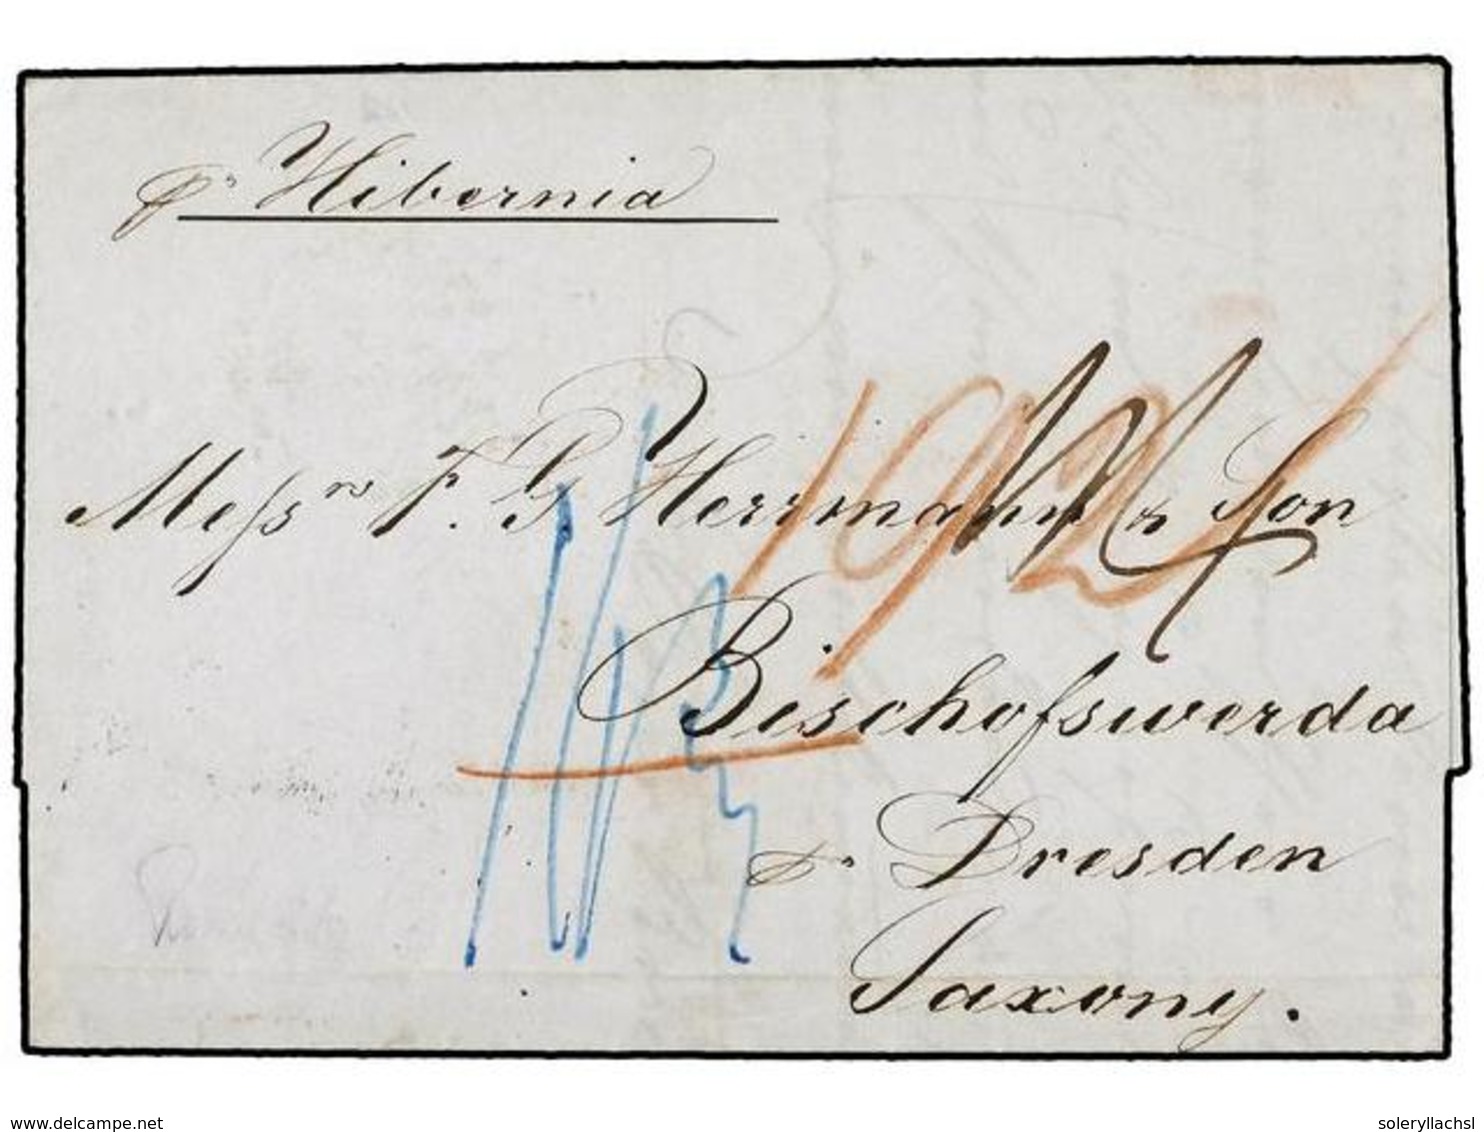 pr Hibernia
Messrs F. G Herrmann & Son
Bischofswerda
pr Dresden
Saxony.
delcampe.net
soleryllachsl